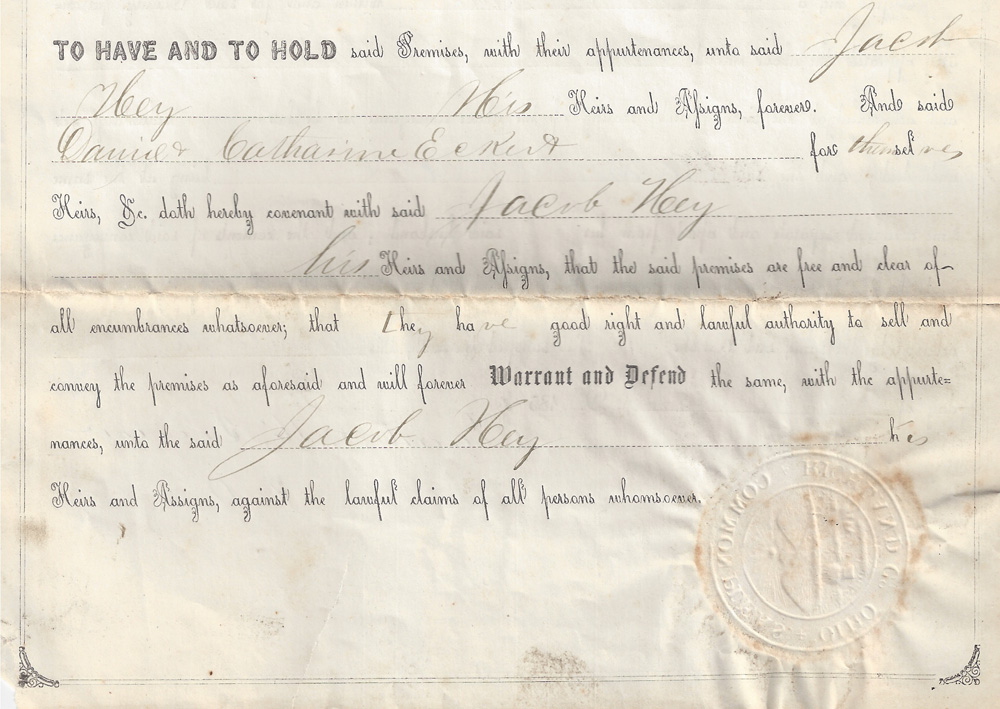 TO HAVE AND TO HOLD said Premises, with their appurtenances, unto said Jacob
Hey His Heirs and Assigns, forever. And said
Daniel & Catharine Eckert for themselves
Heirs, &c. doth hereby covenant with said Jacob Hey
his Heirs and Assigns, that the said premises are free and clear of
all encumbrances whatsoever; that they have good right and lawful authority to sell and
convey the premises as aforesaid and will forever Warrant and Defend the same, with the appurte=
nances, unto the said Jacob Hey his
Heirs and Assigns, against the lawful claims of all persons whomsoever.
COMMON PLEAS OHIO